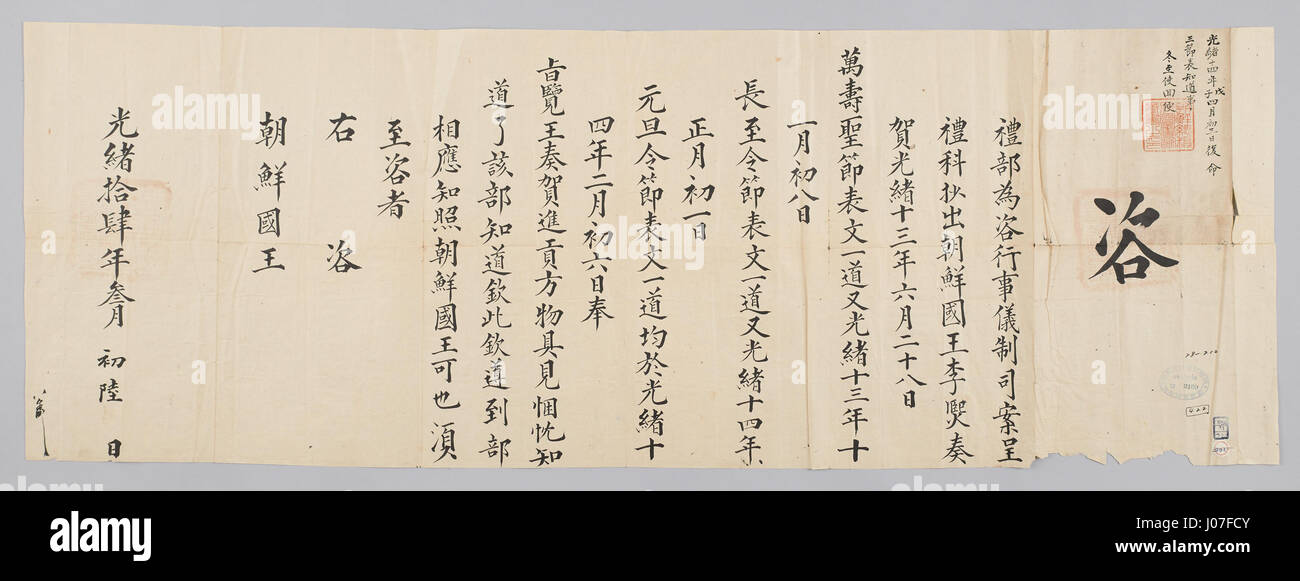 光緒十四年戊子四月初三日復命
三節表知道事
冬至使回便
咨
禮部為咨行事儀制司案呈
禮科抄出朝鮮國王李㷩奏
賀光緒十三年六月二十八日
萬壽聖節表文一道又光緒十三年十
一月初八日
長至令節表文一道又光緒十四年
正月初一日
元旦令節表文一道均於光緒十
四年二月初六日奉
旨覽王奏賀進貢方物具見悃忱知
道了該部知道欽此欽遵到部
相應知照朝鮮國王可也湏
至咨者
右咨
朝鮮國王
光緒拾肆年叁月初陸日
alamy
alamy
www.alamy.com
Image ID: J07FCY